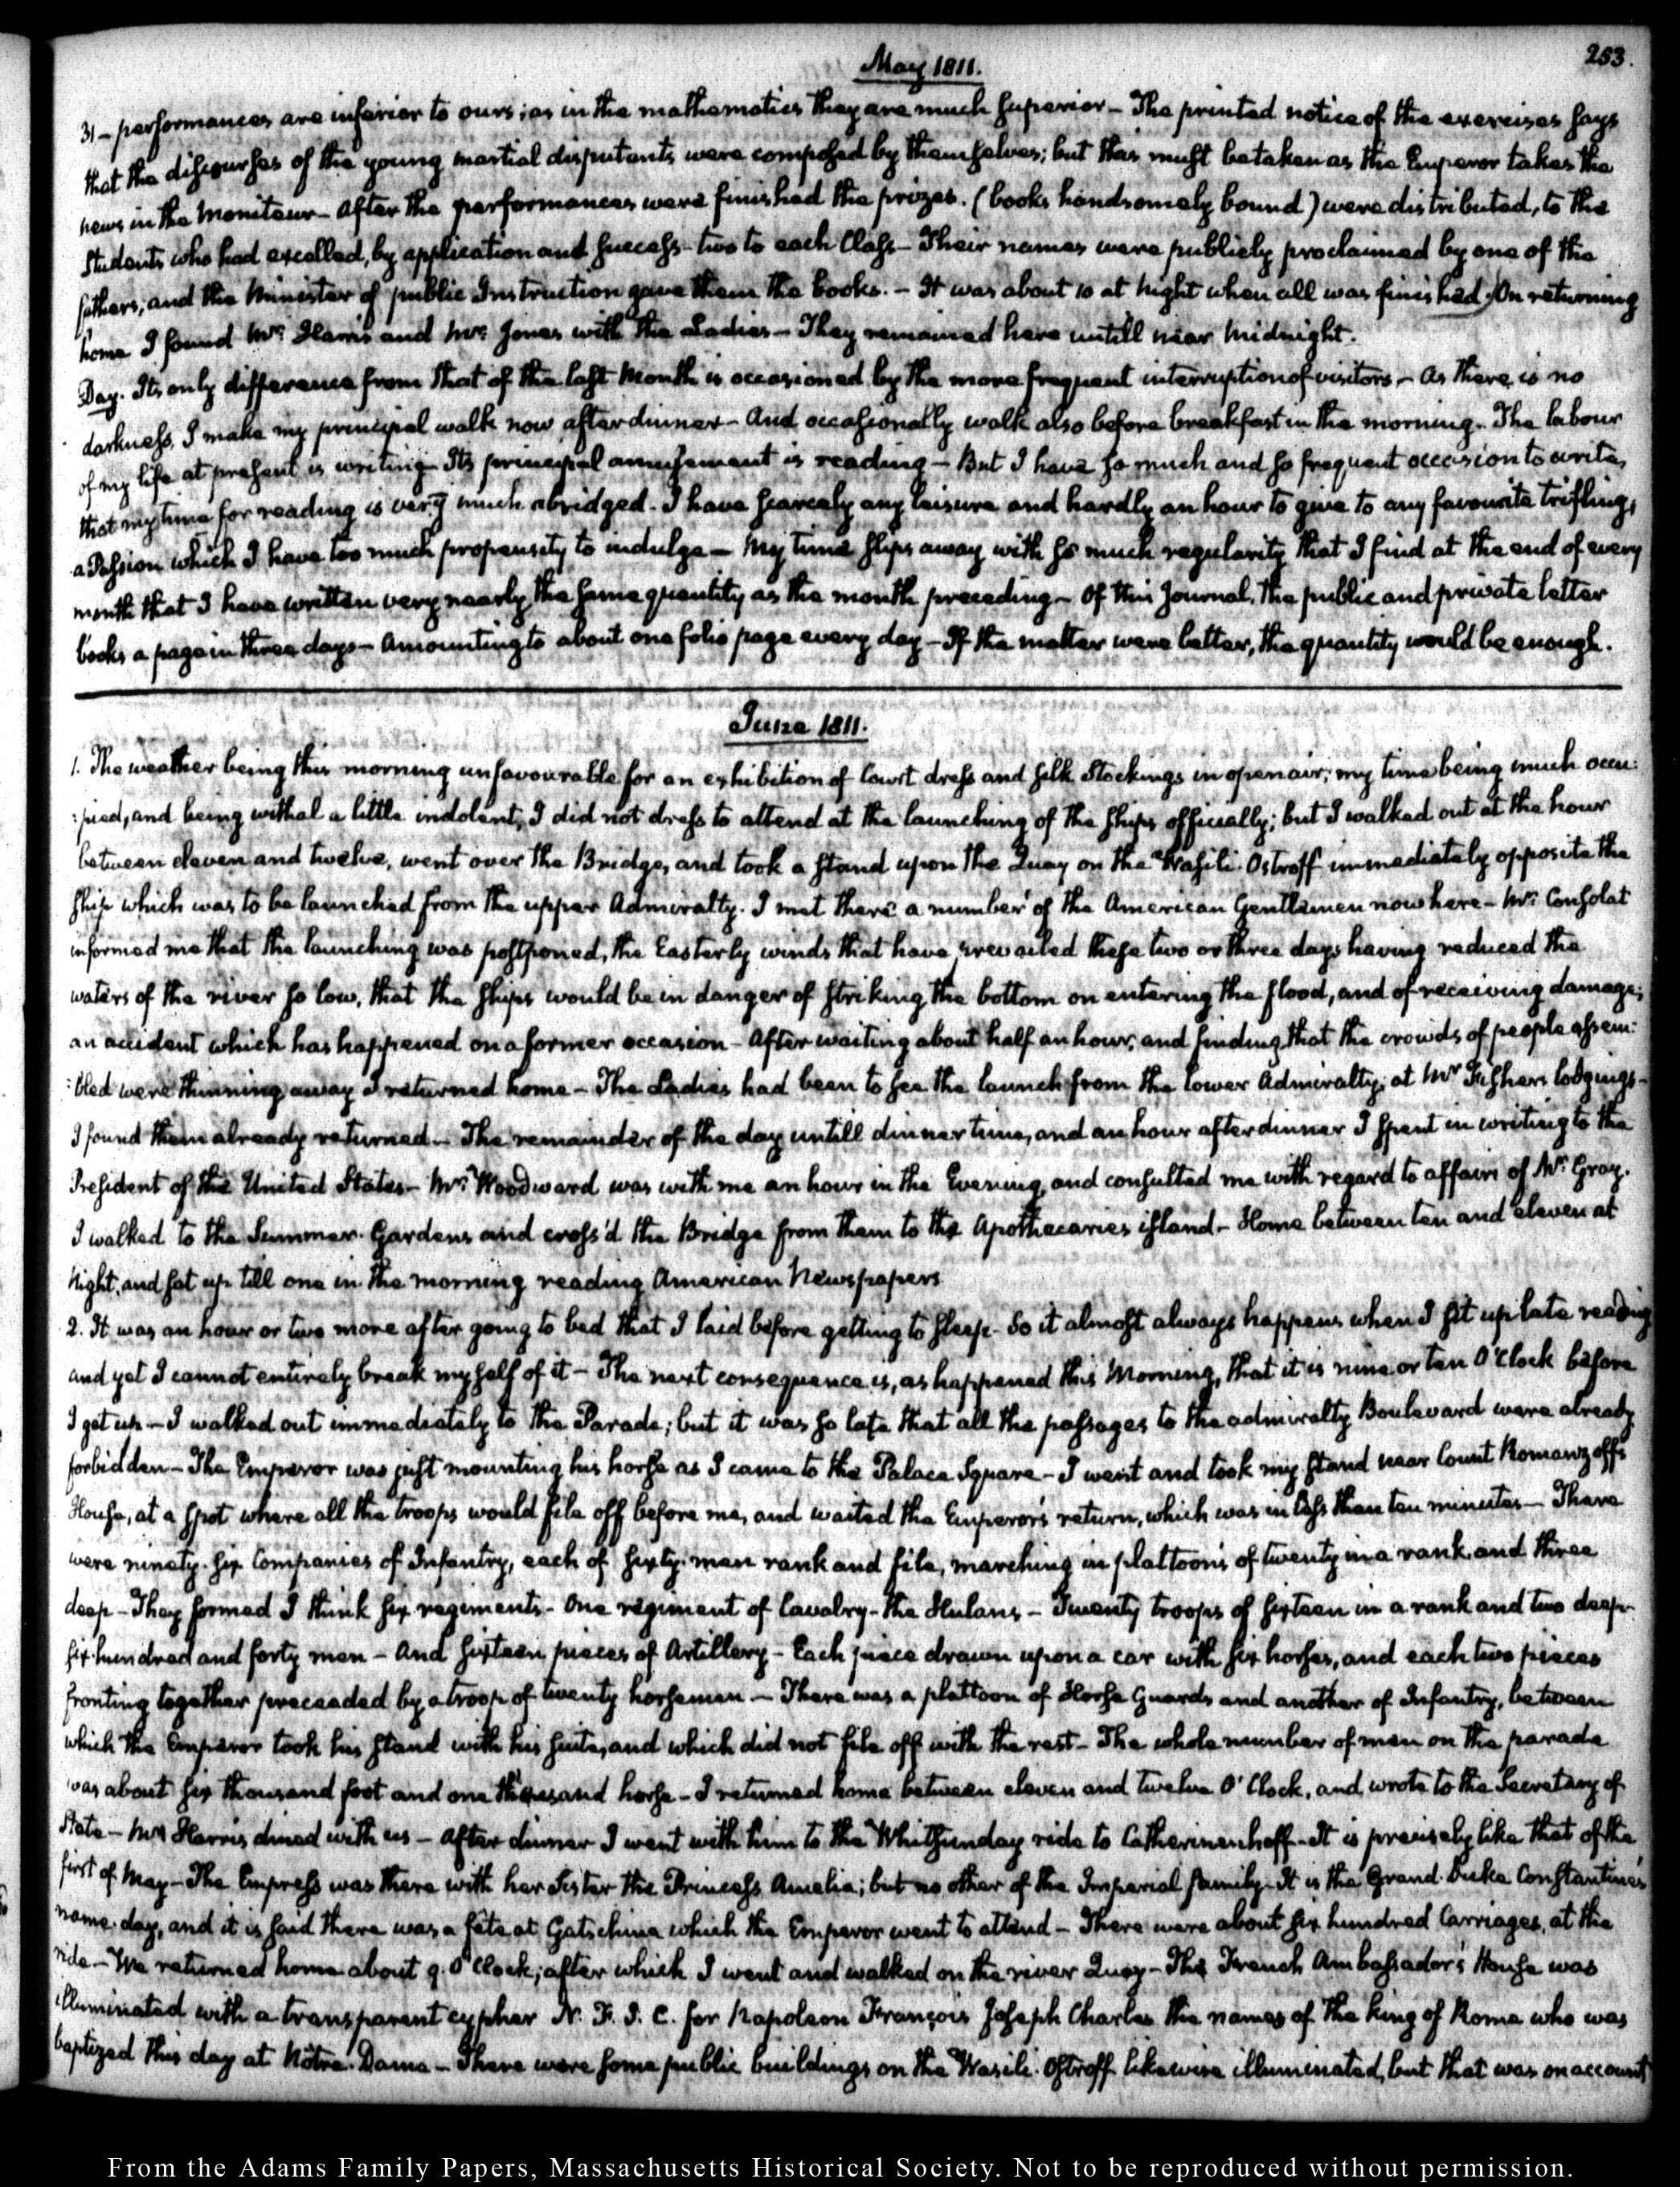 253.
May 1811.
31 – performances are inferior to ours; as in the mathematics they are much superior – The printed notice of the exercises says
that the discourses of the young martial disputants were composed by themselves; but this must be taken as the Emperor takes the
news in the Moniteur – After the performances were finished the prizes. (books handsomely bound) were distributed, to the
Students who had excelled, by application and success – two to each Class – Their names were publicly proclaimed by one of the
fathers, and the Minister of public Instruction gave them the books. – It was about 10 at Night when all was finished. On returning
home I found Mr. Harris and Mr. Jones with the Ladies – They remained here untill near Midnight.
Day. Its only difference from that of the last Month is occasioned by the more frequent interruption of visitors – As there is no
darkness, I make my principal walk now after dinner – And occasionally walk also before breakfast in the morning. The labour
of my life at present is writing – Its principal amusement is reading – But I have so much and so frequent occasion to write,
that my time for reading is very much abridged. I have scarcely any leisure and hardly an hour to give to any favourite trifling,
a Passion which I have too much propensity to indulge – My time slips away with so much regularity that I find at the end of every
month that I have written very nearly the same quantity as the month preceding – Of this Journal, the public and private letter
books a page in three days – Amounting to about one folio page every day – If the matter were better, the quantity would be enough.
June 1811.
1. The weather being this morning unfavourable for an exhibition of Court dress and silk Stockings in open air; my time being much occu:
:pied, and being withal a little indolent, I did not dress to attend at the launching of the ships officially; but I walked out at the hour
between eleven and twelve, went over the Bridge, and took a stand upon the Quay on the Wasili-Ostroff immediately opposite the
ship which was to be launched from the upper Admiralty. I met there a number of the American Gentlemen now here – Mr. Consolat
informed me that the launching was postponed, the Easterly winds that have prevailed these two or three days having reduced the
waters of the river so low, that the ships would be in danger of striking the bottom on entering the flood, and of receiving damage;
an accident which has happened on a former occasion – After waiting about half an hour, and finding that the crowds of people assem:
:bled were thinning away I returned home – The Ladies had been to see the launch from the lower Admiralty, at Mr. Fisher's lodgings –
I found them already returned – The remainder of the day untill dinner time, and an hour after dinner I spent in writing to the
President of the United States – Mr. Woodward was with me an hour in the Evening, and consulted me with regard to affairs of Mr. Gray.
I walked to the Summer-Gardens and cross'd the Bridge from them to the Apothecaries island – Home between ten and eleven at
Night, and sat up till one in the morning reading American Newspapers
2. It was an hour or two more after going to bed that I laid before getting to sleep – So it almost always happens when I sit up late reading
and yet I cannot entirely break myself of it – The next consequence is, as happened this Morning, that it is nine or ten O'Clock before
I get up – I walked out immediately to the Parade; but it was so late that all the passages to the admiralty Boulevard were already
forbidden – The Emperor was just mounting his horse as I came to the Palace Square – I went and took my stand near Count Romanzoff's
House, at a spot where all the troops would file off before me, and waited the Emperor's return, which was in less than ten minutes – There
were ninety-six Companies of Infantry, each of sixty men rank and file, marching in plattoons of twenty in a rank and three
deep – They formed I think six regiments – One regiment of Cavalry – the Hulans – Twenty troops of sixteen in a rank and two deep –
six hundred and forty men – And sixteen pieces of Artillery – Each piece drawn upon a car with six horses, and each two pieces
fronting together preceeded by a troop of twenty horsemen – There was a plattoon of Horse Guards and another of Infantry, between
which the Emperor took his stand with his suite, and which did not file off with the rest – The whole number of men on the parade
was about six thousand foot and one thousand horse – I returned home between eleven and twelve O'Clock, and wrote to the Secretary of
State – Mr. Harris dined with us – After dinner I went with him to the Whitsunday ride to Catherinenhoff – It is precisely like that of the
first of May – The Empress was there with her Sister the Princess Amelia; but no other of the Imperial family – It is the Grand-Duke Constantine's
name-day, and it is said there was a fête at Gatschina which the Emperor went to attend – There were about six hundred Carriages, at the
ride – We returned home about 9. O'Clock; after which I went and walked on the river Quay – The French Ambassador's House was
illuminated with a transparent cypher N. F. J. C. for Napoleon François Joseph Charles the names of the king of Rome who was
baptized this day at Nôtre-Dame – There were some public buildings on the Wasili-Ostroff likewise illuminated, but that was on account
From the Adams Family Papers, Massachusetts Historical Society. Not to be reproduced without permission.